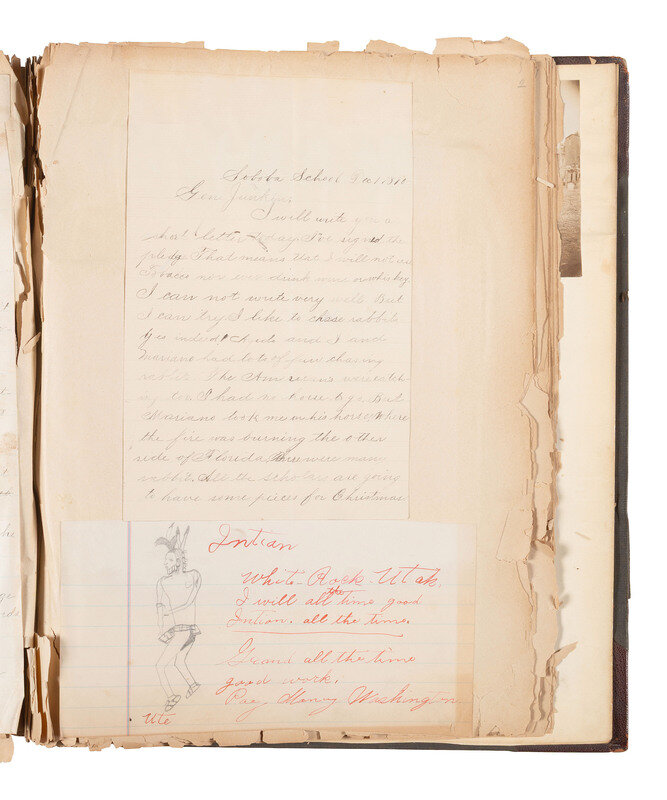 Soboba School Dec 1, 1890
Gen.
I will write you a
short letter today. I've signed the
pledge That means that I will not use
Tobacco nor ever drink wine or whiskey
I can not write very well But
I can try I like to chase rabbits
yes indeed! and I and
Mariano had lots of fun chasing
rabbits. The Americans were catch-
ing too. I had no horse to go. But
Mariano took me on his horse. Where
the fire was burning the other
side of Florida there were many
rabbits. All the scholars are going
to have some pieces for Christmas
Intian
White-Rock-Utah.
I will all the time good
Intian. all the time.
Grand all the time
good work.
Washington
Ute
2